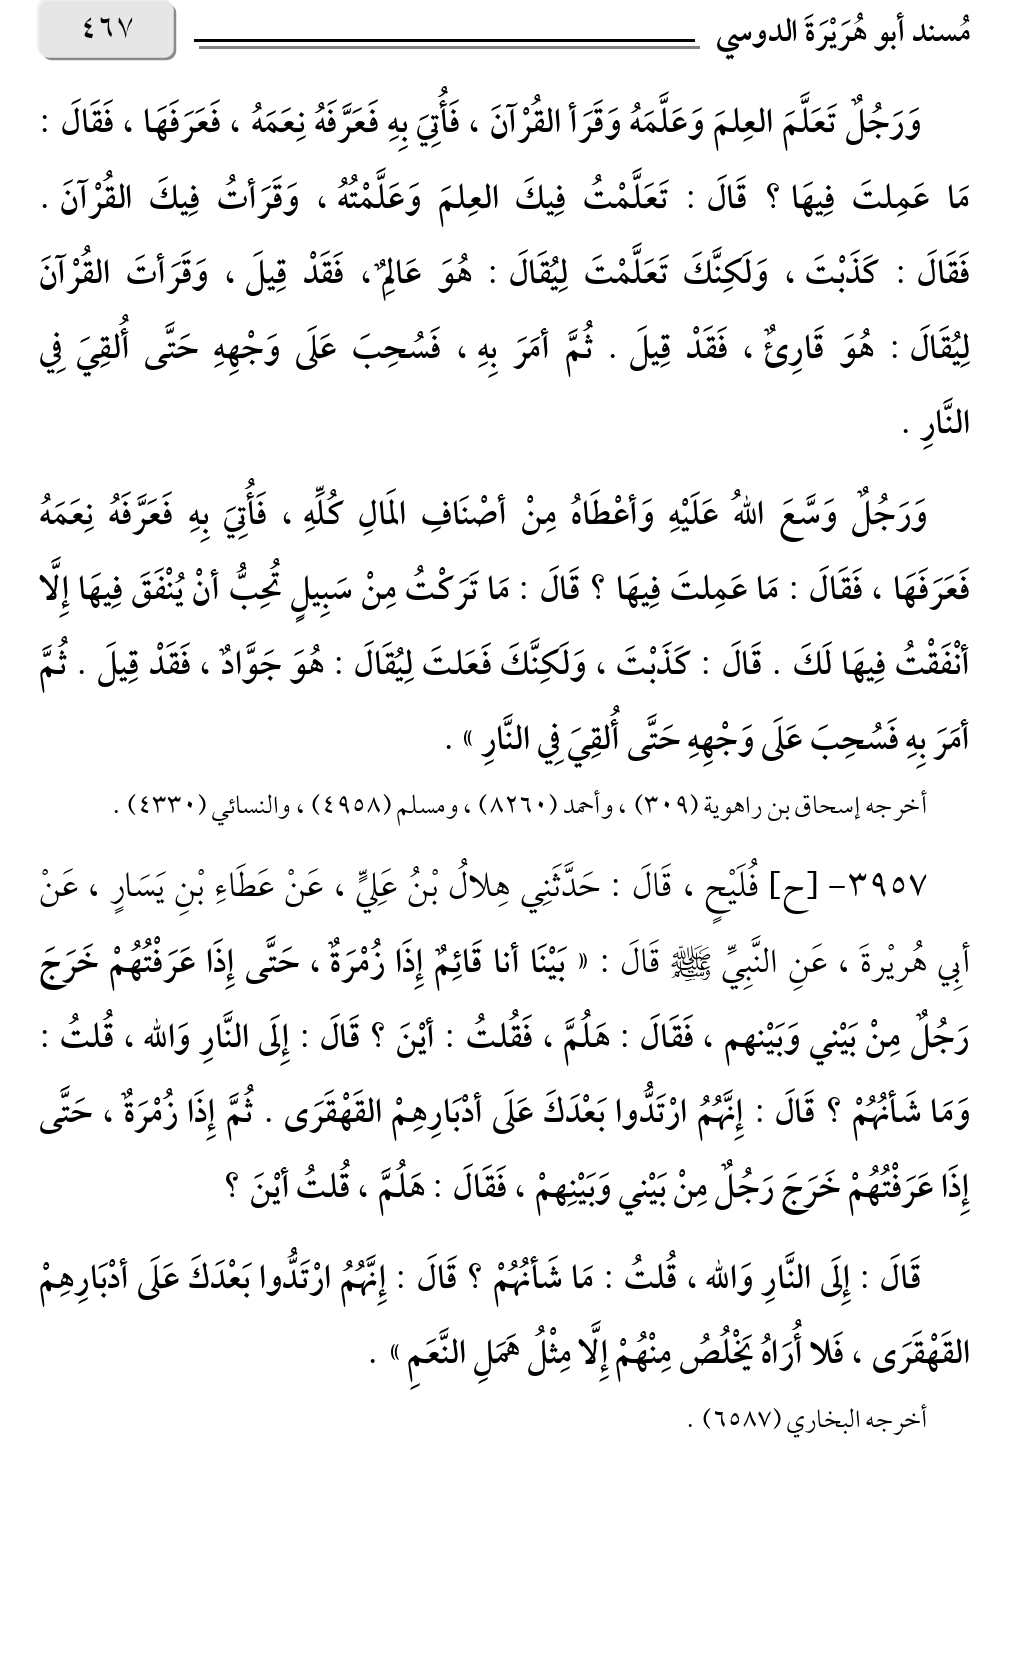 مُسند أبو هُرَيْرَةَ الدوسي ٤٦٧
وَرَجُلٌ تَعَلَّمَ العِلمَ وَعَلَّمَهُ وَقَرَأ القُرْآنَ ، فَأُتِيَ بِهِ فَعَرَّفَهُ نِعَمَهُ ، فَعَرَفَهَا ، فَقَالَ :
مَا عَمِلتَ فِيهَا ؟ قَالَ : تَعَلَّمْتُ فِيكَ العِلمَ وَعَلَّمْتُهُ ، وَقَرَأتُ فِيكَ القُرْآنَ .
فَقَالَ : كَذَبْتَ ، وَلَكِنَّكَ تَعَلَّمْتَ لِيُقَالَ : هُوَ عَالِمٌ ، فَقَدْ قِيلَ ، وَقَرَأتَ القُرْآنَ
لِيُقَالَ : هُوَ قَارِئٌ ، فَقَدْ قِيلَ . ثُمَّ أمَرَ بِهِ ، فَسُحِبَ عَلَى وَجْهِهِ حَتَّى أُلقِيَ فِي
النَّارِ .
وَرَجُلٌ وَسَّعَ اللهُ عَلَيْهِ وَأعْطَاهُ مِنْ أصْنَافِ المَالِ كُلِّهِ ، فَأُتِيَ بِهِ فَعَرَّفَهُ نِعَمَهُ
فَعَرَفَهَا ، فَقَالَ : مَا عَمِلتَ فِيهَا ؟ قَالَ : مَا تَرَكْتُ مِنْ سَبِيلٍ تُحِبُّ أنْ يُنْفَقَ فِيهَا إِلَّا
أنْفَقْتُ فِيهَا لَكَ . قَالَ : كَذَبْتَ ، وَلَكِنَّكَ فَعَلتَ لِيُقَالَ : هُوَ جَوَّادٌ ، فَقَدْ قِيلَ . ثُمَّ
أمَرَ بِهِ فَسُحِبَ عَلَى وَجْهِهِ حَتَّى أُلقِيَ فِي النَّارِ » .
أخرجه إسحاق بن راهوية (٣٠٩) ، وأحمد (٨٢٦٠) ، ومسلم (٤٩٥٨) ، والنسائي (٤٣٣٠) .
٣٩٥٧- [ح] فُلَيْحٍ ، قَالَ : حَدَّثَنِي هِلالُ بْنُ عَلِيٍّ ، عَنْ عَطَاءِ بْنِ يَسَارٍ ، عَنْ
أبِي هُرَيْرةَ ، عَنِ النَّبِيِّ ﷺ قَالَ : « بَيْنَا أنا قَائِمٌ إِذَا زُمْرَةٌ ، حَتَّى إِذَا عَرَفْتُهُمْ خَرَجَ
رَجُلٌ مِنْ بَيْنِي وَبَيْنهم ، فَقَالَ : هَلُمَّ ، فَقُلتُ : أيْنَ ؟ قَالَ : إِلَى النَّارِ وَالله ، قُلتُ :
وَمَا شَأنُهُمْ ؟ قَالَ : إِنَّهُمُ ارْتَدُّوا بَعْدَكَ عَلَى أدْبَارِهِمْ القَهْقَرَى . ثُمَّ إِذَا زُمْرَةٌ ، حَتَّى
إِذَا عَرَفْتُهُمْ خَرَجَ رَجُلٌ مِنْ بَيْنِي وَبَيْنِهِمْ ، فَقَالَ : هَلُمَّ ، قُلتُ أيْنَ ؟
قَالَ : إِلَى النَّارِ وَالله ، قُلتُ : مَا شَأنُهُمْ ؟ قَالَ : إِنَّهُمُ ارْتَدُّوا بَعْدَكَ عَلَى أدْبَارِهِمْ
القَهْقَرَى ، فَلا أُرَاهُ يَخْلُصُ مِنْهُمْ إِلَّا مِثْلُ هَمَلِ النَّعَمِ » .
أخرجه البخاري (٦٥٨٧) .